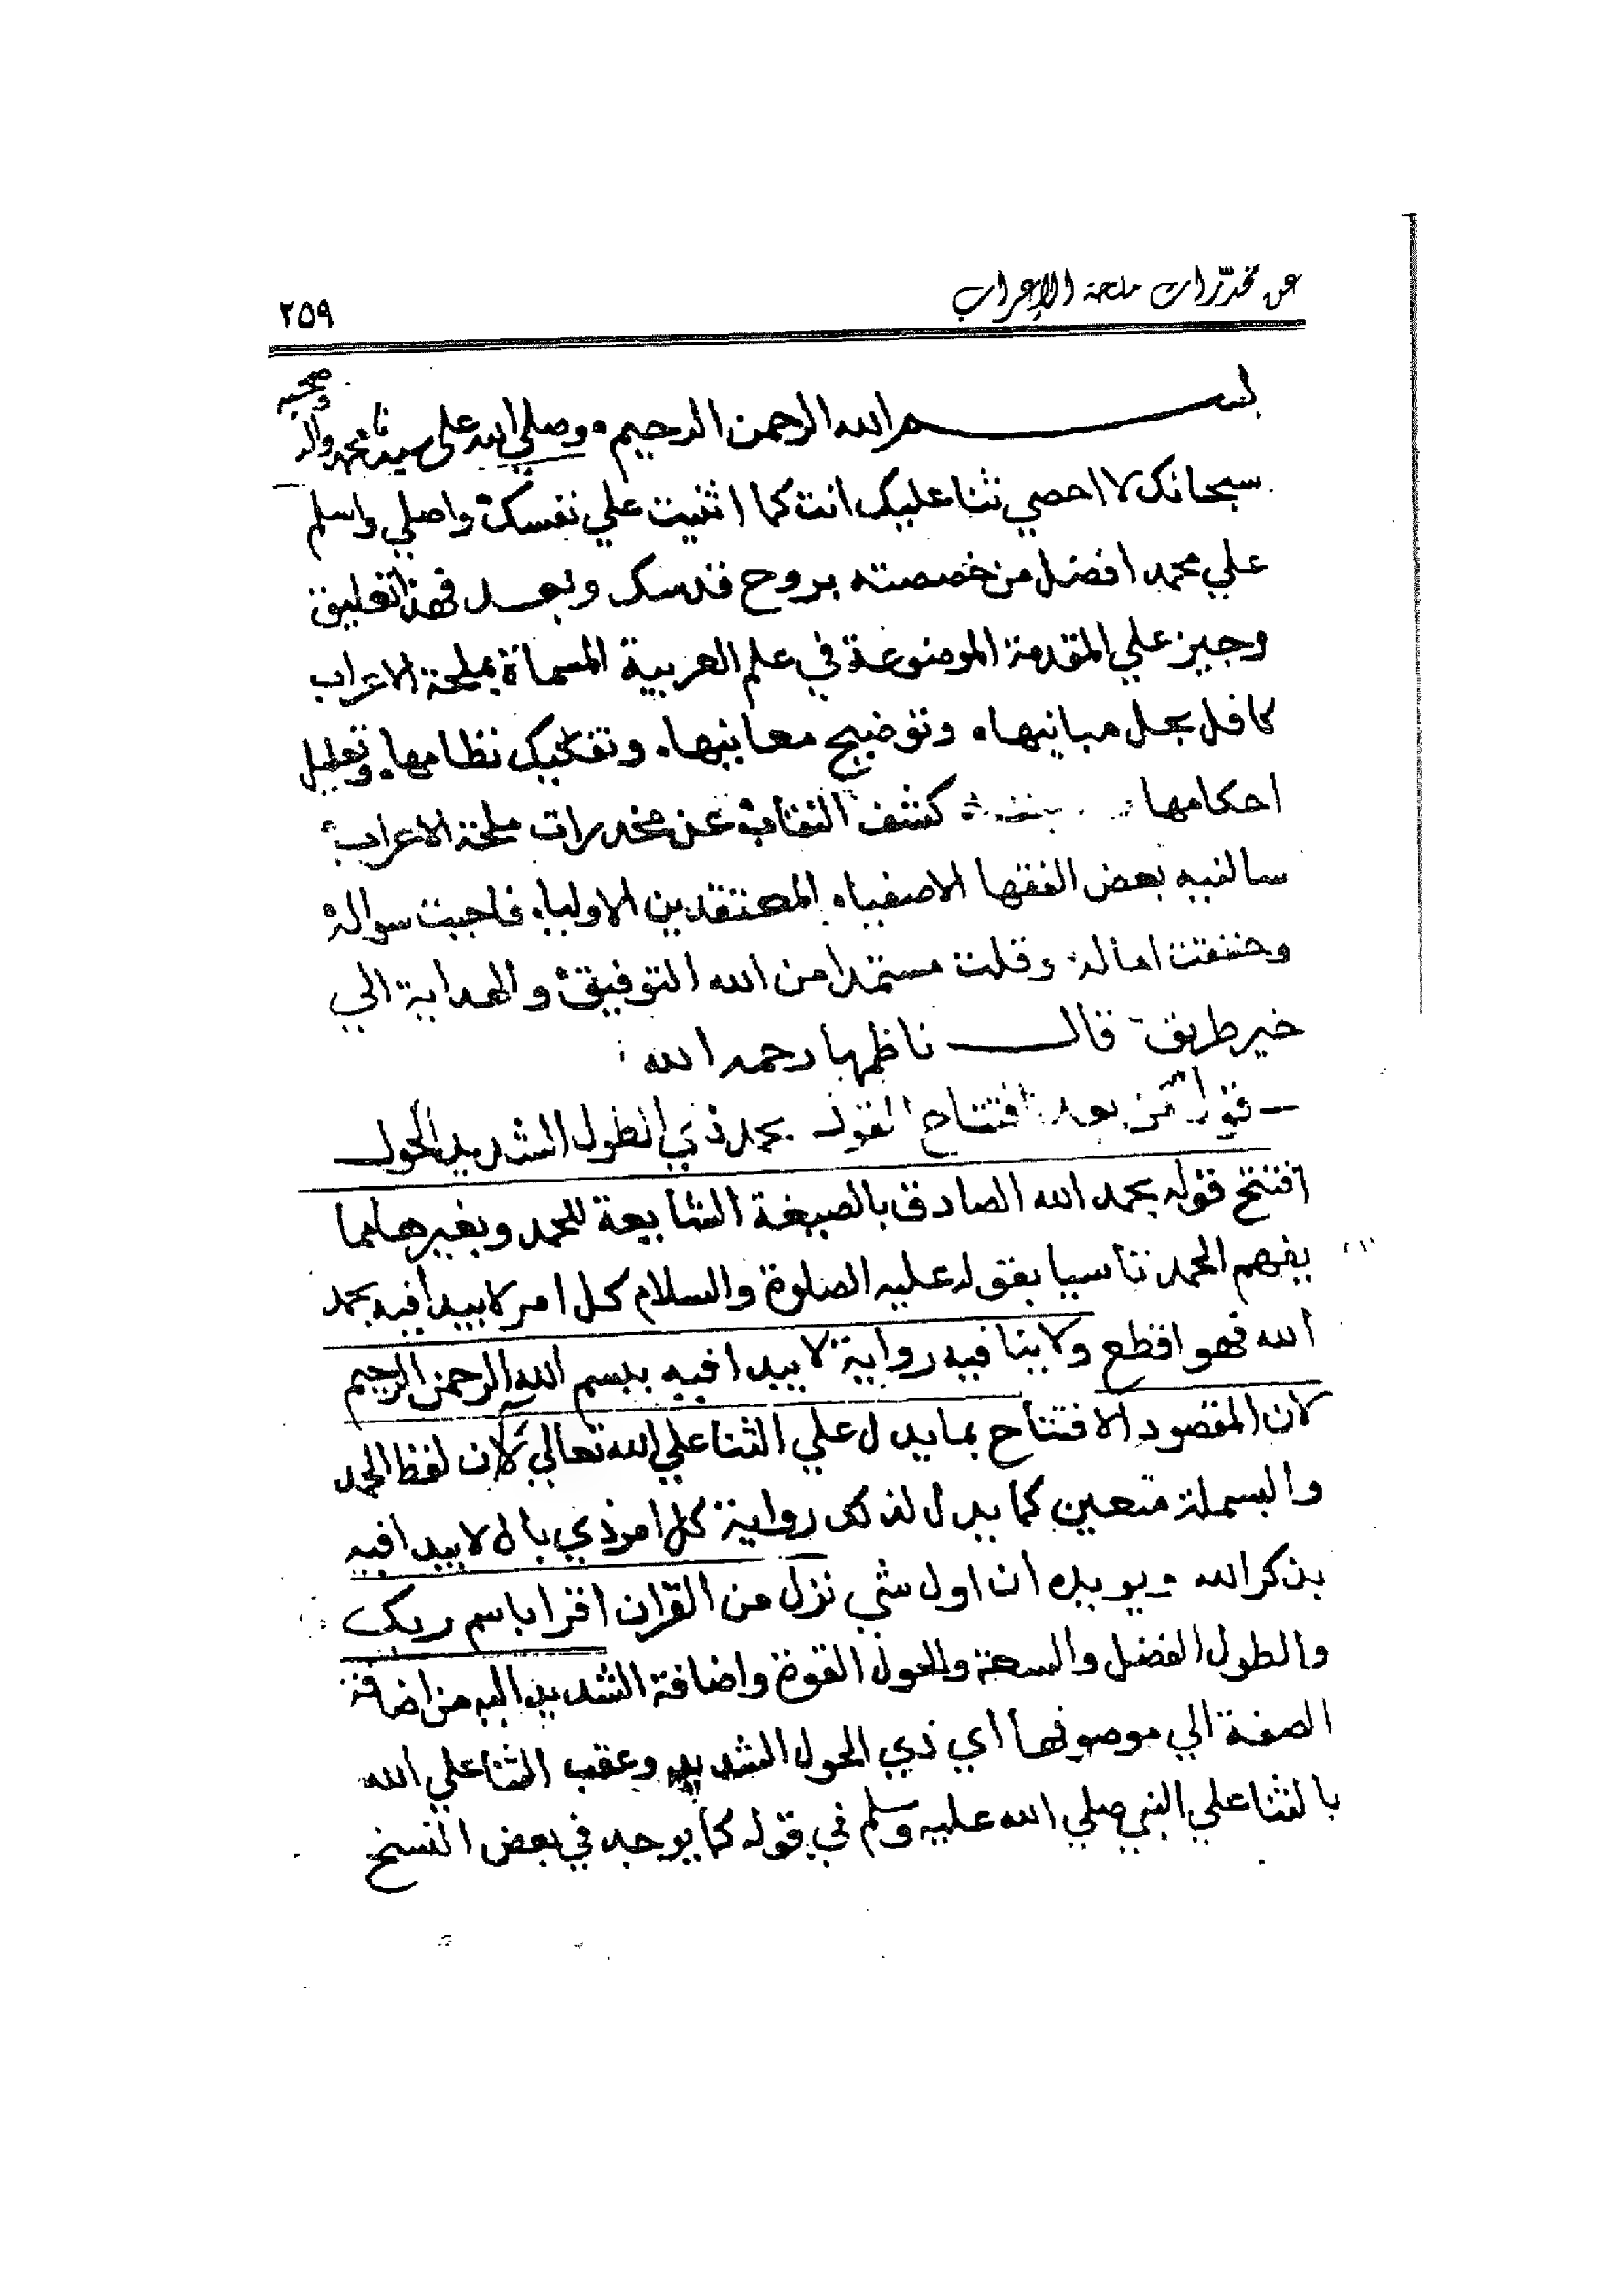 عن مخدّرات ملحة الإعراب
٢٥٩
بسم الله الرحمن الرحيم وصلي الله على سيدنا محمد واله وصحبه
سبحانك لا احصي ثنا عليك انت كما اثنيت علي نفسك واصلي واسلم
علي محمد افضل من خصصته بروح قدسك وبعد فهذا تعليق
وجيز علي المقدمة الموضوعة في علم العربية المسماة بملحة الاعراب
كافل بحل مبانيها وتوضيح معانيها وتفكيك نظامها وتعليل
احكامها كشف النقاب عن مخدرات ملحة الاعراب
سالنيه بعض الفقها الاصفياء المعتقدين الاولياء فاجبت سواله
وحققت اماله وقلت مستمدا من الله التوفيق والهداية الي
خير طريق قال ناظمها رحمه الله
اقول من بعد افتتاح القول بحمد ذي الطول الشديد الحول
افتتح قوله بحمد الله الصادق بالصيغة الشايعة للحمد وبغيرها مما
يفهم الحمد تاسيا بقوله عليه الصلوة والسلام كل امر لا يبدا فيه بحمد
الله فهو اقطع ولا ينافيه رواية لا يبدا فيه ببسم الله الرحمن الرحيم
لان المقصود الافتتاح بما يدل علي الثنا علي الله تعالي لا ان لفظ الحمد
والبسملة متعين كما يدل لذلك رواية كل امر ذي بال لا يبدا فيه
بذكر الله ويويده ان اول شي نزل من القران اقرا باسم ربك
والطول الفضل والسعة والحول القوة واضافة الشديد اليه من اضافة
الصفة الي موصوفها أي ذي الحول الشديد وعقب الثنا علي الله
بالثنا علي النبي صلي الله عليه وسلم في قوله كما يوجد في بعض النسخ